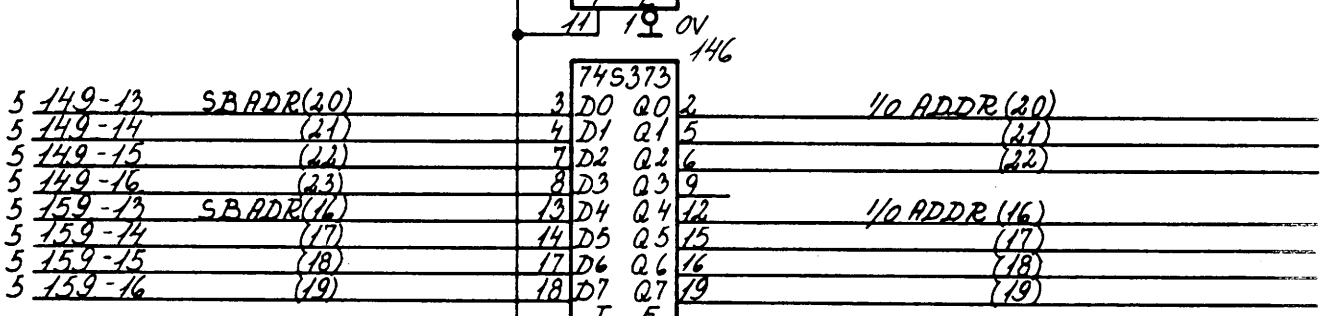 11 1 0V
146
74S373
5 149-13 SBADR(20) 3 D0 Q0 2 I/O ADDR(20)
5 149-14 (21) 4 D1 Q1 5 (21)
5 149-15 (22) 7 D2 Q2 6 (22)
5 149-16 (23) 8 D3 Q3 9
5 159-13 SBADR(16) 13 D4 Q4 12 I/O ADDR(16)
5 159-14 (17) 14 D5 Q5 15 (17)
5 159-15 (18) 17 D6 Q6 16 (18)
5 159-16 (19) 18 D7 Q7 19 (19)